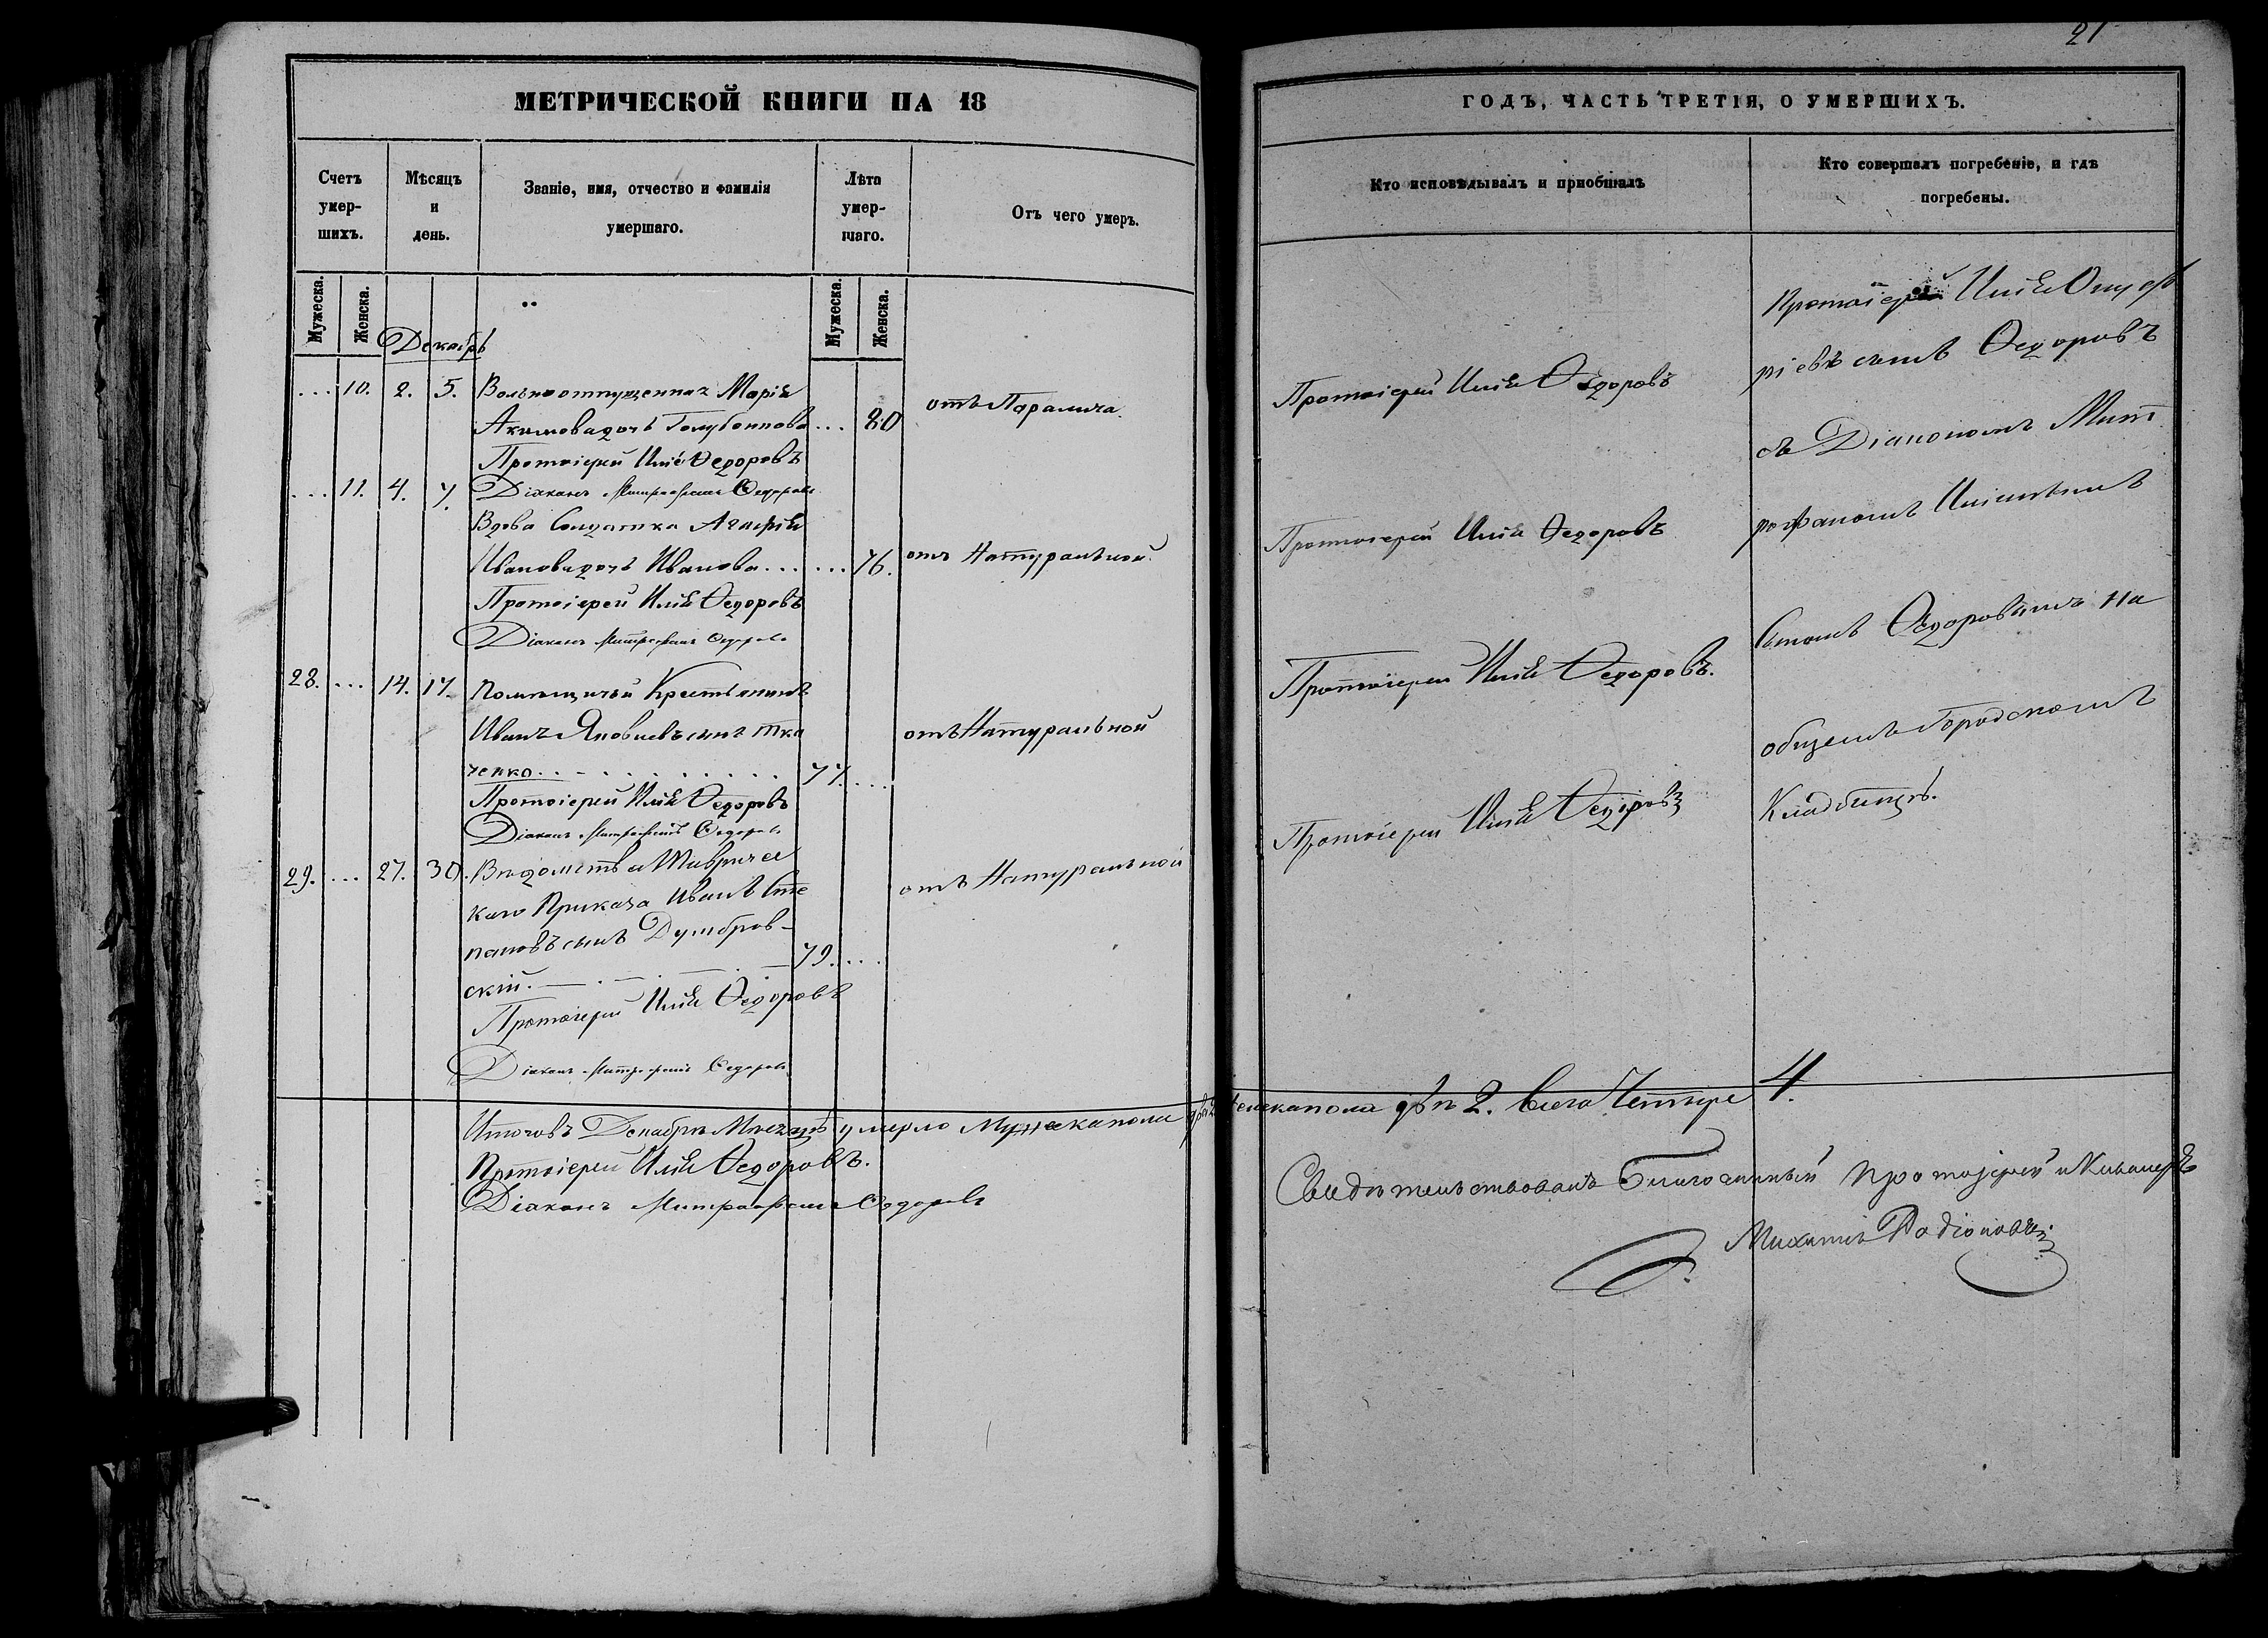 МЕТРИЧЕСКОЙ КНИГИ НА 18
Счетъ умер-шихъ.
Мѣсяцъ и день.
Званіе, имя, отчество и фамилія умершаго.
Лѣта умер-шаго.
Отъ чего умеръ.
Мужеска.
Женска.
Мужеска.
Женска.
Декабрь
... 10. 2. 5. Вольноотпущенная Марія
Акимова дочь Голубенкова ... 80 отъ Паралича.
Протоіерей Илія Ѳедоровъ
... 11. 4. 7. Діаконъ Митрофанъ Ѳедоровъ
Вдова Солдатка Агафія
Иванова дочь Иванова ... ... 76. отъ Натуральной
Протоіерей Илія Ѳедоровъ
Діаконъ Митрофанъ Ѳедоровъ
28. ... 14. 17. Помѣщичій Крестьянинъ
Иванъ Яковлевъ сынъ Тка отъ Натуральной
ченко 77. ...
Протоіерей Илія Ѳедоровъ
Діаконъ Митрофанъ Ѳедоровъ
29. ... 27. 30. Вѣдомства Тавричес отъ Натуральной
каго Приказа Иванъ Сте
пановъ сынъ Думбров-
скій. 79. ...
Протоіерей Илія Ѳедоровъ
Діаконъ Митрофанъ Ѳедоровъ
Итого въ Декабрѣ Мѣсяцѣ умерло Мужеска пола два 2 женска пола двѣ 2. всего Четыре 4.
Протоіерей Илія Ѳедоровъ.
Діаконъ Митрофанъ Ѳедоровъ
21
ГОДЪ, ЧАСТЬ ТРЕТІЯ, О УМЕРШИХЪ.
Кто исповѣдывалъ и пріобщалъ
Кто совершалъ погребеніе, и гдѣ погребены.
Протоіерей Илія Ѳедоровъ
Протоіерей Илія Ѳедоровъ
Протоіерей Илія Ѳедоровъ.
Протоіерей Илія Ѳедоровъ
Протоіерей Илія Онуф
ріевъ сынъ Ѳедоровъ
съ Діакономъ Мит
рофаномъ Иліинымъ
Сыномъ Ѳедоровымъ на
общемъ Городскомъ
Кладбищѣ.
Свидѣтельствовалъ Благочинный Протоіерей и Кавалеръ
Михаилъ Родіоновъ